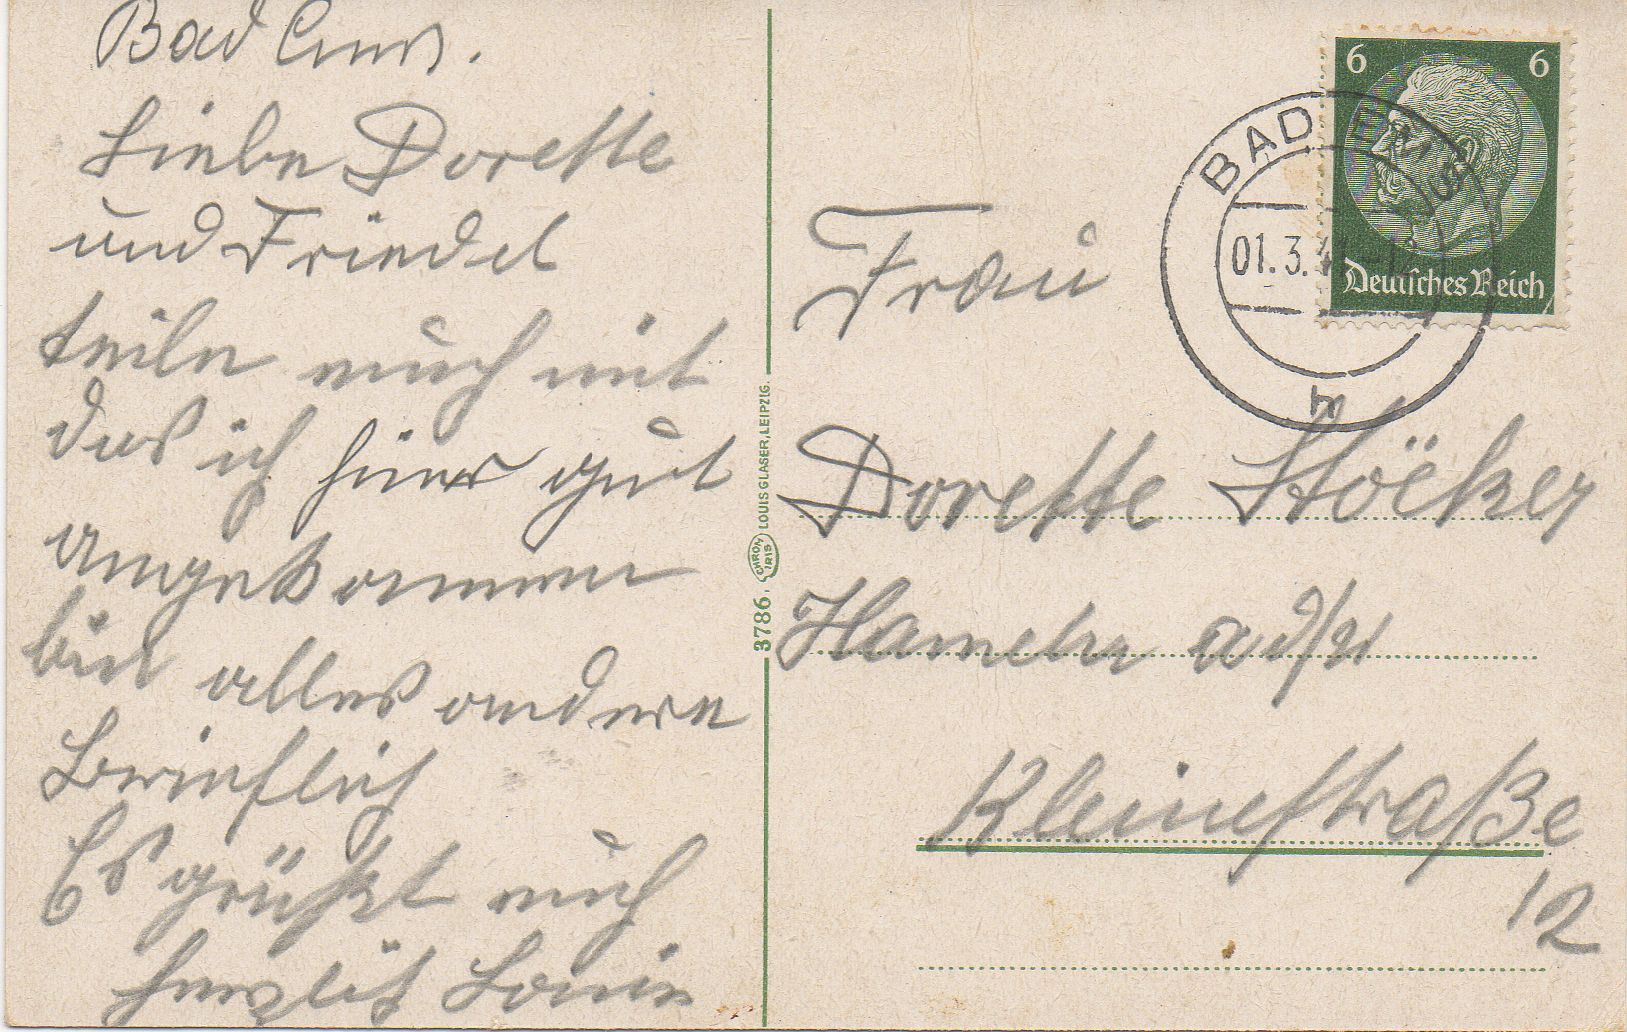 Bad Ems.
Liebe Dorette
und Friedel
teile euch mit
das ich hier gut
angekommen
bin alles andere
Brieflich
Es grüßt euch
herzlich
3786.
CHROM IRIS
LOUIS GLASER, LEIPZIG.
6 6
Deutsches Reich
BAD EMS
01.3.41
h
Frau
Dorette Stöcker
Hameln ad/W
Kleinestraße
12